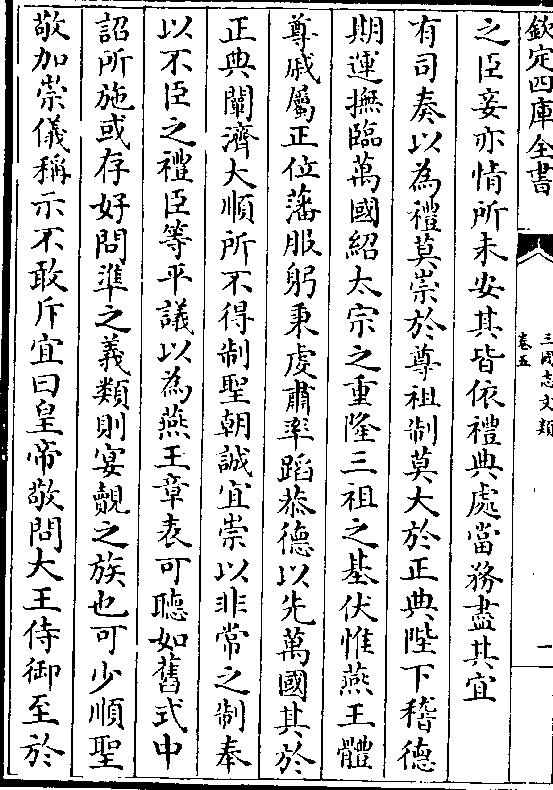 欽定四庫全書
三國志文類
卷五
一
之臣妾亦情所未安其皆依禮典處當務盡其宜
有司奏以為禮莫崇於尊祖制莫大於正典陛下稽德
期運撫臨萬國紹太宗之重隆三祖之基伏惟燕王體
尊戚屬正位藩服躬秉虔肅率蹈恭德以先萬國其於
正典闡濟大順所不得制聖朝誠宜崇以非常之制奉
以不臣之禮臣等平議以為燕王章表可聽如舊式中
詔所施或存好問準之義類則宴覿之族也可少順聖
敬加崇儀稱示不敢斥宜曰皇帝敬問大王侍御至於